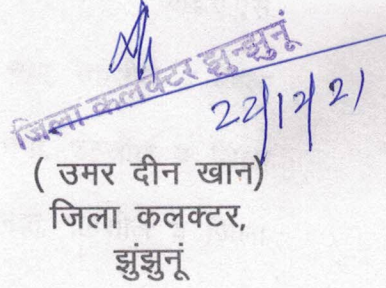 जिला कलक्टर झुन्झुनूं
22/12/21
( उमर दीन खान)
जिला कलक्टर,
झुंझुनूं